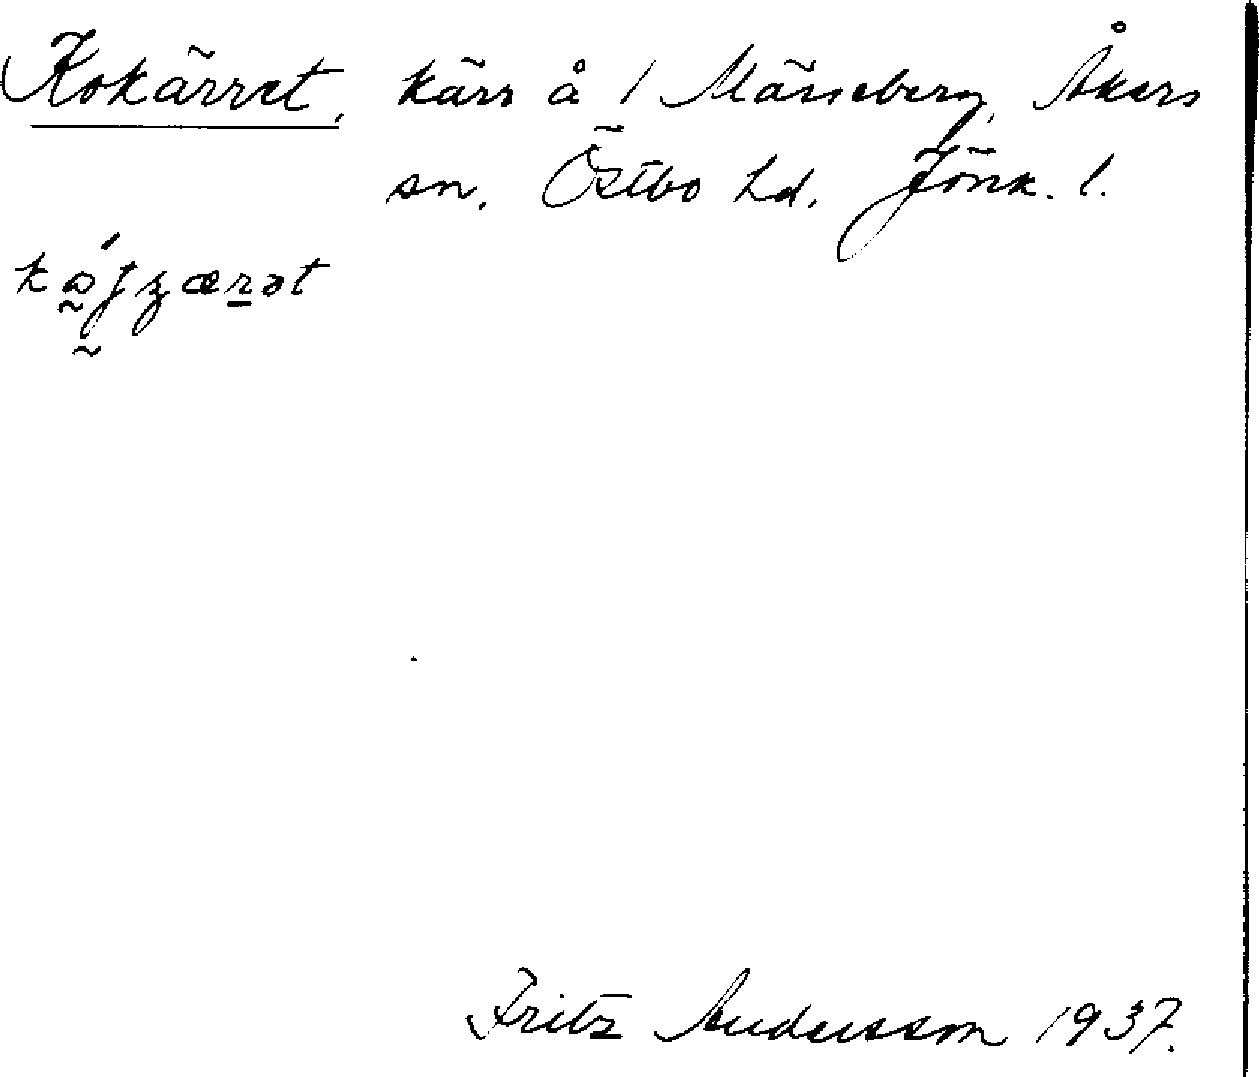 Kokärret, kärr å / Mårseberg, Åkers
sn. Östbo hd. Jönk. l.
Fritz Andersson 1937.